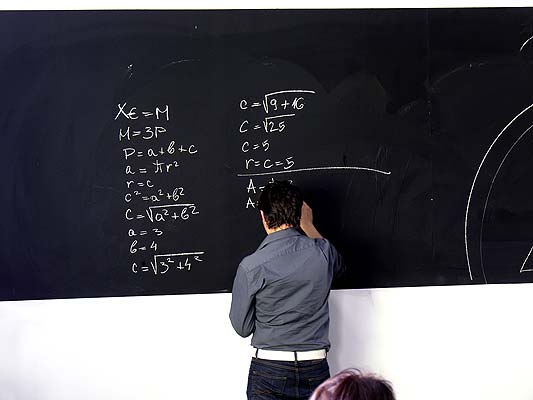 X∈=M
M=3P
P=a+b+c
a=πr²
r=c
c²=a²+b²
c=√a²+b²
a=3
b=4
c=√3²+4²
c=√9+16
c=√25
c=5
r=c=5
A=
A